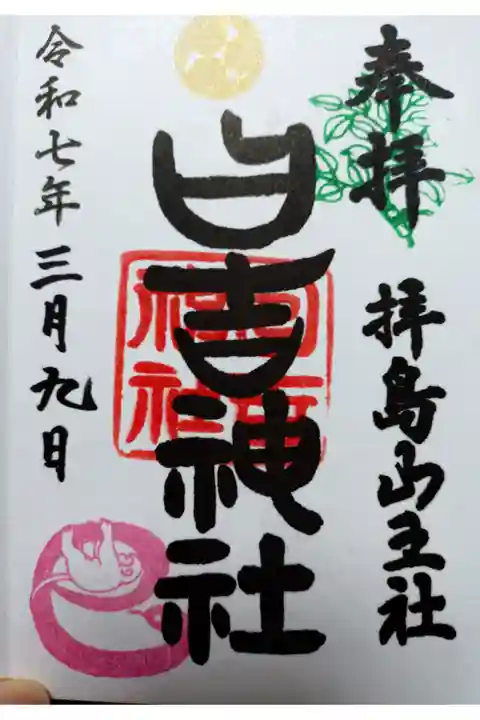 奉拝
拝島山王社
日吉神社
令和七年三月九日